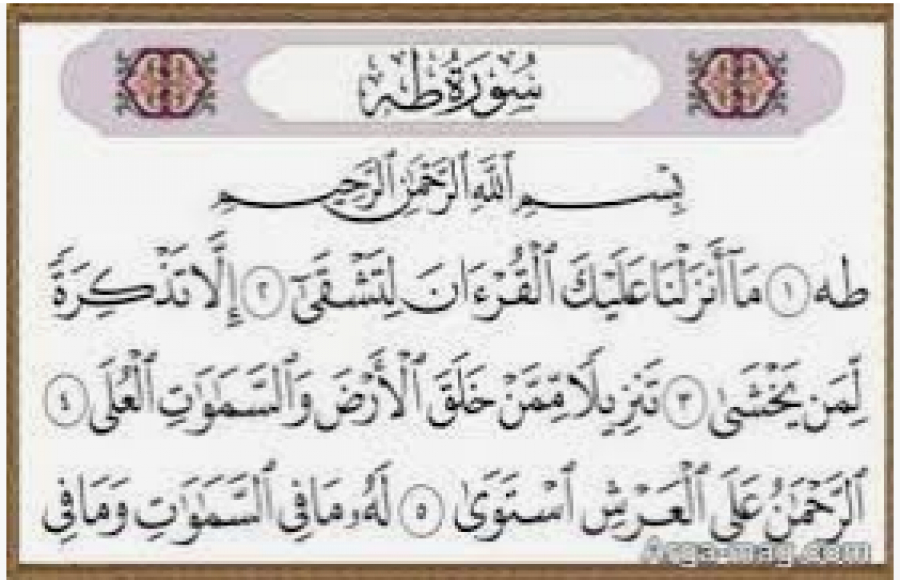 سُورَةُ طه
بِسْمِ ٱللَّهِ ٱلرَّحْمَٰنِ ٱلرَّحِيمِ
طه ١ مَآ أَنزَلْنَا عَلَيْكَ ٱلْقُرْءَانَ لِتَشْقَىٰٓ ٢ إِلَّا تَذْكِرَةً
لِّمَن يَخْشَىٰ ٣ تَنزِيلًا مِّمَّنْ خَلَقَ ٱلْأَرْضَ وَٱلسَّمَٰوَٰتِ ٱلْعُلَى ٤
ٱلرَّحْمَٰنُ عَلَى ٱلْعَرْشِ ٱسْتَوَىٰ ٥ لَهُۥ مَا فِى ٱلسَّمَٰوَٰتِ وَمَا فِى
Arga-mag.com